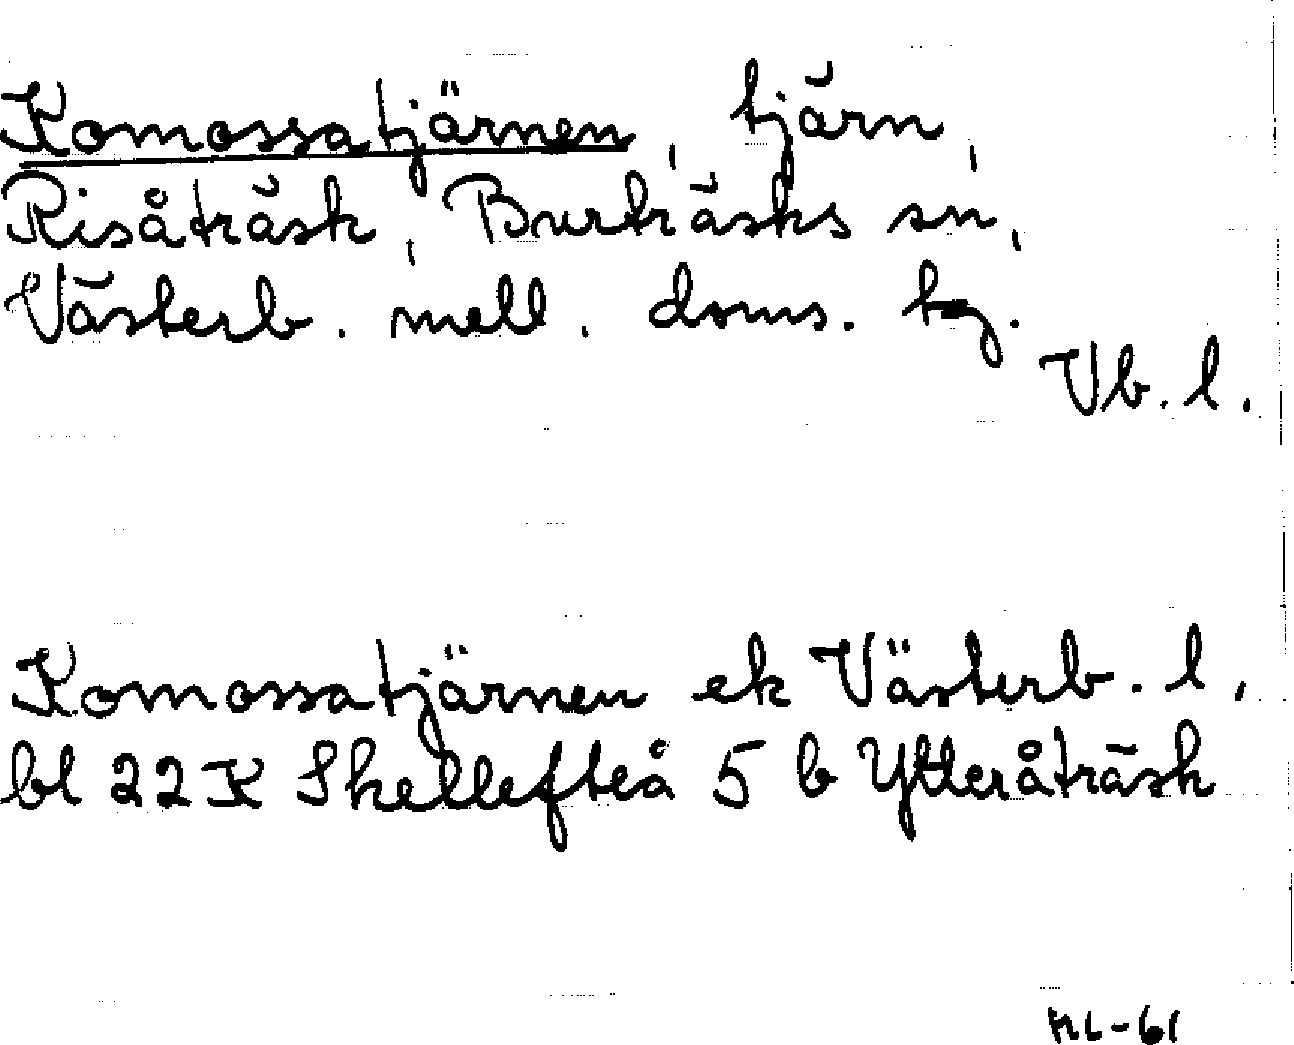 Komossatjärnen, tjärn,
Risåträsk, Burträsks sn,
Västerb. mell. doms. tg.
Vb. l.
Komossatjärnen ek Västerb. l,
bl 22 K Skellefteå 5 b Ytteråträsk
ML-61